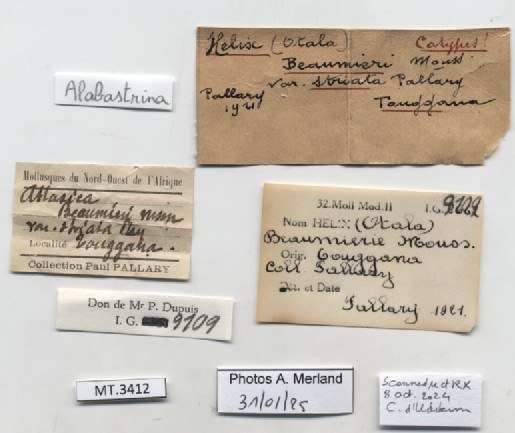 Alabastrina
Helix (Otala) Cotypes!
Beaumieri Mouss
var. striata Pallary
Pallary
1921
Touggana
Mollusques du Nord-Ouest de l'Afrique
Atlasica
Beaumieri
var. striata
Localité Touggana.
Collection Paul PALLARY
32. Moll Mod. II I.G. 9109
Nom HELIX (Otala)
Beaumierie Mouss.
Orig. Touggana
Coll. Pallary
Dét. et Date
Pallary 1921.
Don de Mr P. Dupuis
I. G. 9109
MT.3412
Photos A. Merland
31/01/25
8 oct. 2024